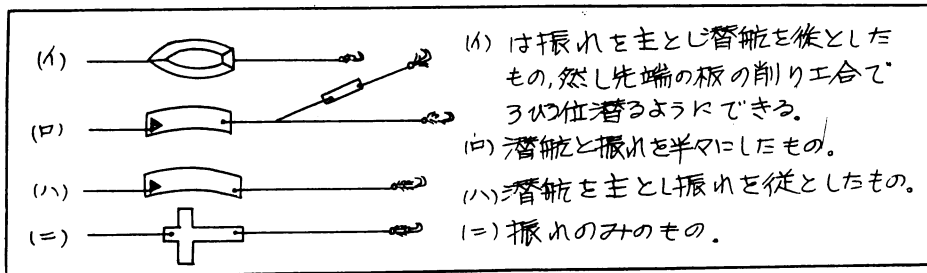 (イ)
(ロ)
(ハ)
(ニ)
(イ) は振れを主とし潜航を従とした
もの,然し先端の板の削り工合で
3ひろ位潜るようにできる。
(ロ) 潜航と振れを半々にしたもの。
(ハ) 潜航を主とし振れを従としたもの。
(ニ) 振れのみのもの.